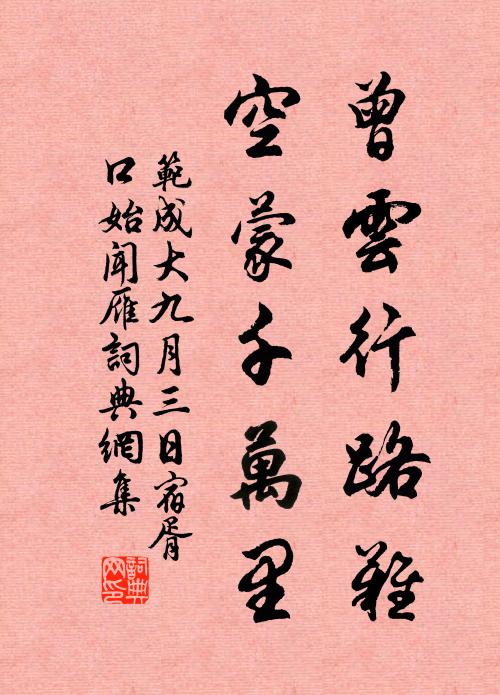 曾雲行路難
空蒙千萬里
範成大九月三日宿胥
口始聞雁詞典網集
詞典
网印